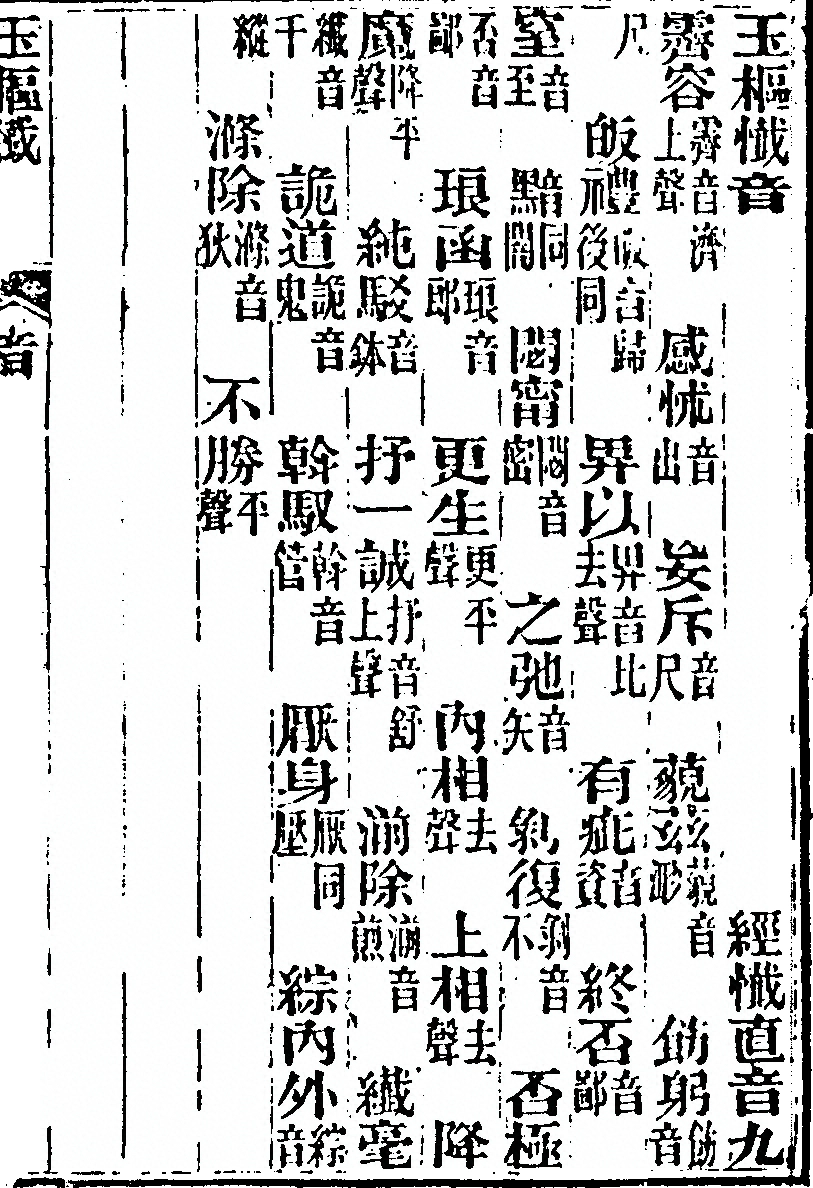 玉樞懺音 經懺直音九
霽容霽音濟上聲 感怵音出 妄斥音尺 藐茲藐音渺 飭躬飭音
尺 皈禮皈音歸後同 畀以畀音比去聲 有疵音資 終否音鄙
窒音至 黯闇同 閟甯閟音密 之弛音矢 剝復剝音不 否極
否音鄙 琅函琅音郎 更生更平聲 內相去聲 上相去聲 降
魔降平聲 純駁音鉢 抒一誠抒音舒上聲 湔除湔音煎 纖毫
纖音千 詭道詭音鬼 斡馭斡音管 厭身厭同壓 綜內外綜音
縱 滌除滌音狄 不勝平聲
玉樞懺 音